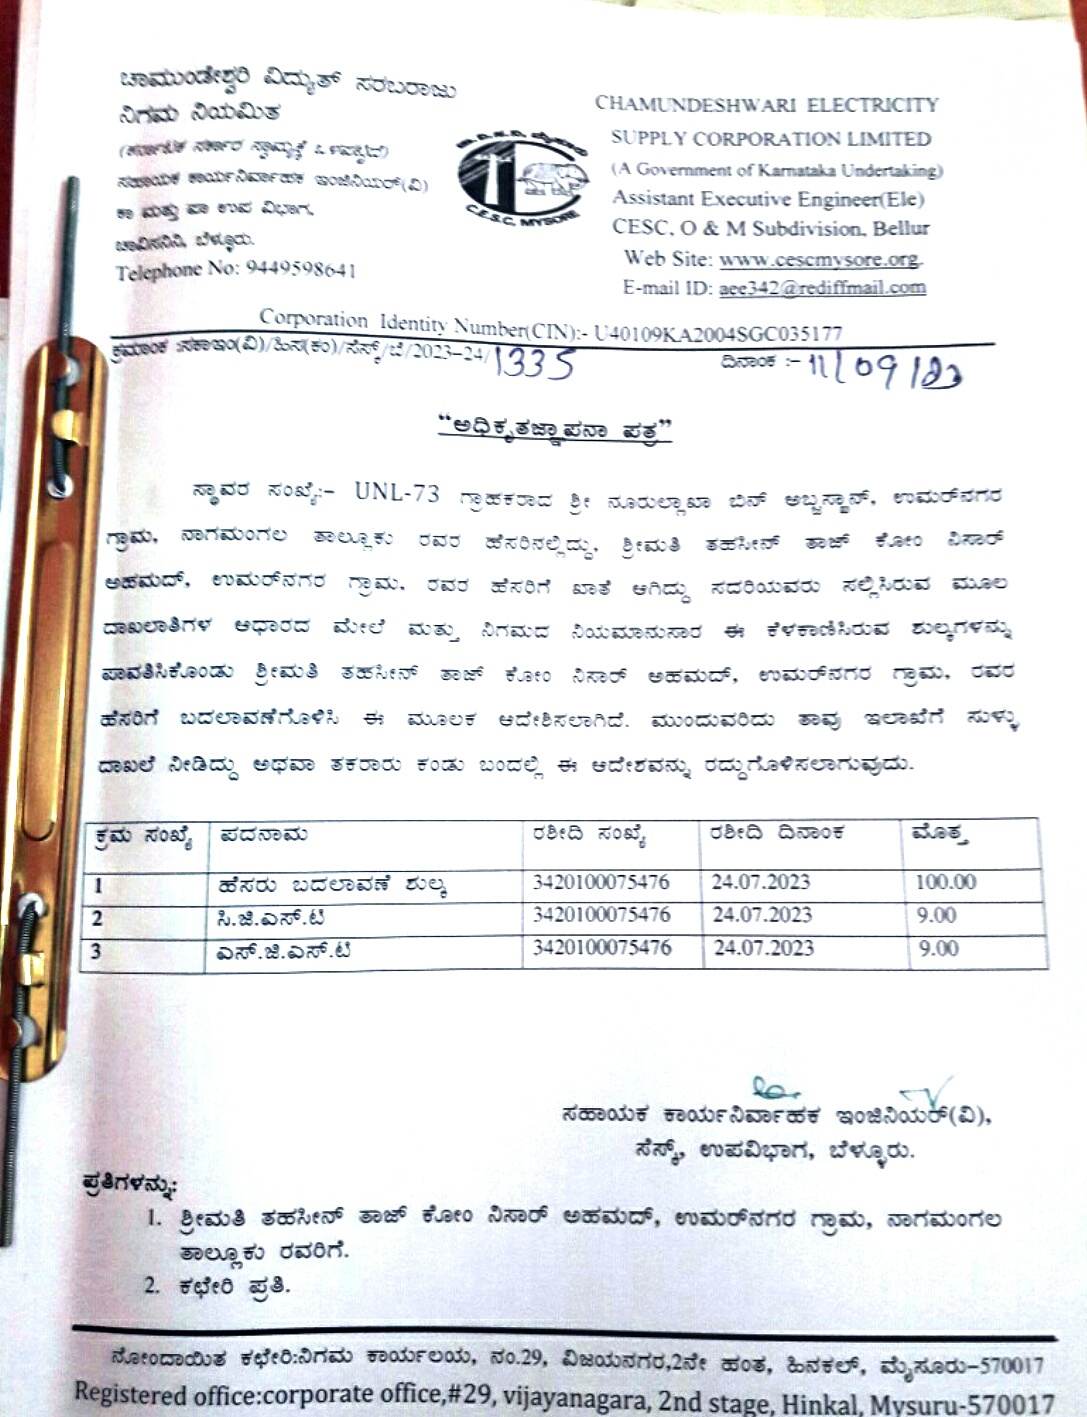 ಚಾಮುಂಡೇಶ್ವರಿ ವಿದ್ಯುತ್ ಸರಬರಾಜು
ನಿಗಮ ನಿಯಮಿತ
(ಕರ್ನಾಟಕ ಸರ್ಕಾರ ಸ್ವಾಮ್ಯಕ್ಕೆ ಒಳಪಟ್ಟಿದೆ)
ಸಹಾಯಕ ಕಾರ್ಯನಿರ್ವಾಹಕ ಇಂಜಿನಿಯರ್(ವಿ)
ಕಾ ಮತ್ತು ಪಾ ಉಪ ವಿಭಾಗ,
ಚಾವಿಸನಿನಿ, ಬೆಳ್ಳೂರು.
Telephone No: 9449598641
C.E.S.C, MYSORE
CHAMUNDESHWARI ELECTRICITY
SUPPLY CORPORATION LIMITED
(A Government of Karnataka Undertaking)
Assistant Executive Engineer(Ele)
CESC, O & M Subdivision, Bellur
Web Site: www.cescmysore.org.
E-mail ID: aee342@rediffmail.com
Corporation Identity Number(CIN):- U40109KA2004SGC035177
ಕ್ರಮಾಂಕ :ಸಕಾಇಂ(ವಿ)/ಹಿಸ(ಕಂ)/ಸೆಸ್ಕ್/ಬೆ/2023-24/1335 ದಿನಾಂಕ :- 11/09/23
"ಅಧಿಕೃತಜ್ಞಾಪನಾ ಪತ್ರ"
ಸ್ಥಾವರ ಸಂಖ್ಯೆ:- UNL-73 ಗ್ರಾಹಕರಾದ ಶ್ರೀ ನೂರುಲ್ಲಾಖಾ ಬಿನ್ ಅಬ್ಬಸ್ಖಾನ್, ಉಮರ್‌ನಗರ
ಗ್ರಾಮ, ನಾಗಮಂಗಲ ತಾಲ್ಲೂಕು ರವರ ಹೆಸರಿನಲ್ಲಿದ್ದು, ಶ್ರೀಮತಿ ತಹಸೀನ್ ತಾಜ್ ಕೋಂ ನಿಸಾರ್
ಅಹಮದ್, ಉಮರ್‌ನಗರ ಗ್ರಾಮ, ರವರ ಹೆಸರಿಗೆ ಖಾತೆ ಆಗಿದ್ದು ಸದರಿಯವರು ಸಲ್ಲಿಸಿರುವ ಮೂಲ
ದಾಖಲಾತಿಗಳ ಆಧಾರದ ಮೇಲೆ ಮತ್ತು ನಿಗಮದ ನಿಯಮಾನುಸಾರ ಈ ಕೆಳಕಾಣಿಸಿರುವ ಶುಲ್ಕಗಳನ್ನು
ಪಾವತಿಸಿಕೊಂಡು ಶ್ರೀಮತಿ ತಹಸೀನ್ ತಾಜ್ ಕೋಂ ನಿಸಾರ್ ಅಹಮದ್, ಉಮರ್‌ನಗರ ಗ್ರಾಮ, ರವರ
ಹೆಸರಿಗೆ ಬದಲಾವಣೆಗೊಳಿಸಿ ಈ ಮೂಲಕ ಆದೇಶಿಸಲಾಗಿದೆ. ಮುಂದುವರಿದು ತಾವು ಇಲಾಖೆಗೆ ಸುಳ್ಳು
ದಾಖಲೆ ನೀಡಿದ್ದು ಅಥವಾ ತಕರಾರು ಕಂಡು ಬಂದಲ್ಲಿ ಈ ಆದೇಶವನ್ನು ರದ್ದುಗೊಳಿಸಲಾಗುವುದು.
ಕ್ರಮ ಸಂಖ್ಯೆ ಪದನಾಮ ರಶೀದಿ ಸಂಖ್ಯೆ ರಶೀದಿ ದಿನಾಂಕ ಮೊತ್ತ
1 ಹೆಸರು ಬದಲಾವಣೆ ಶುಲ್ಕ 3420100075476 24.07.2023 100.00
2 ಸಿ.ಜಿ.ಎಸ್.ಟಿ 3420100075476 24.07.2023 9.00
3 ಎಸ್.ಜಿ.ಎಸ್.ಟಿ 3420100075476 24.07.2023 9.00
ಸಹಾಯಕ ಕಾರ್ಯನಿರ್ವಾಹಕ ಇಂಜಿನಿಯರ್(ವಿ),
ಸೆಸ್ಕ್, ಉಪವಿಭಾಗ, ಬೆಳ್ಳೂರು.
ಪ್ರತಿಗಳನ್ನು:
1. ಶ್ರೀಮತಿ ತಹಸೀನ್ ತಾಜ್ ಕೋಂ ನಿಸಾರ್ ಅಹಮದ್, ಉಮರ್‌ನಗರ ಗ್ರಾಮ, ನಾಗಮಂಗಲ
ತಾಲ್ಲೂಕು ರವರಿಗೆ.
2. ಕಛೇರಿ ಪ್ರತಿ.
ನೋಂದಾಯಿತ ಕಛೇರಿ:ನಿಗಮ ಕಾರ್ಯಲಯ, ನಂ.29, ವಿಜಯನಗರ,2ನೇ ಹಂತ, ಹಿನಕಲ್, ಮೈಸೂರು-570017
Registered office:corporate office,#29, vijayanagara, 2nd stage, Hinkal, Mysuru-570017